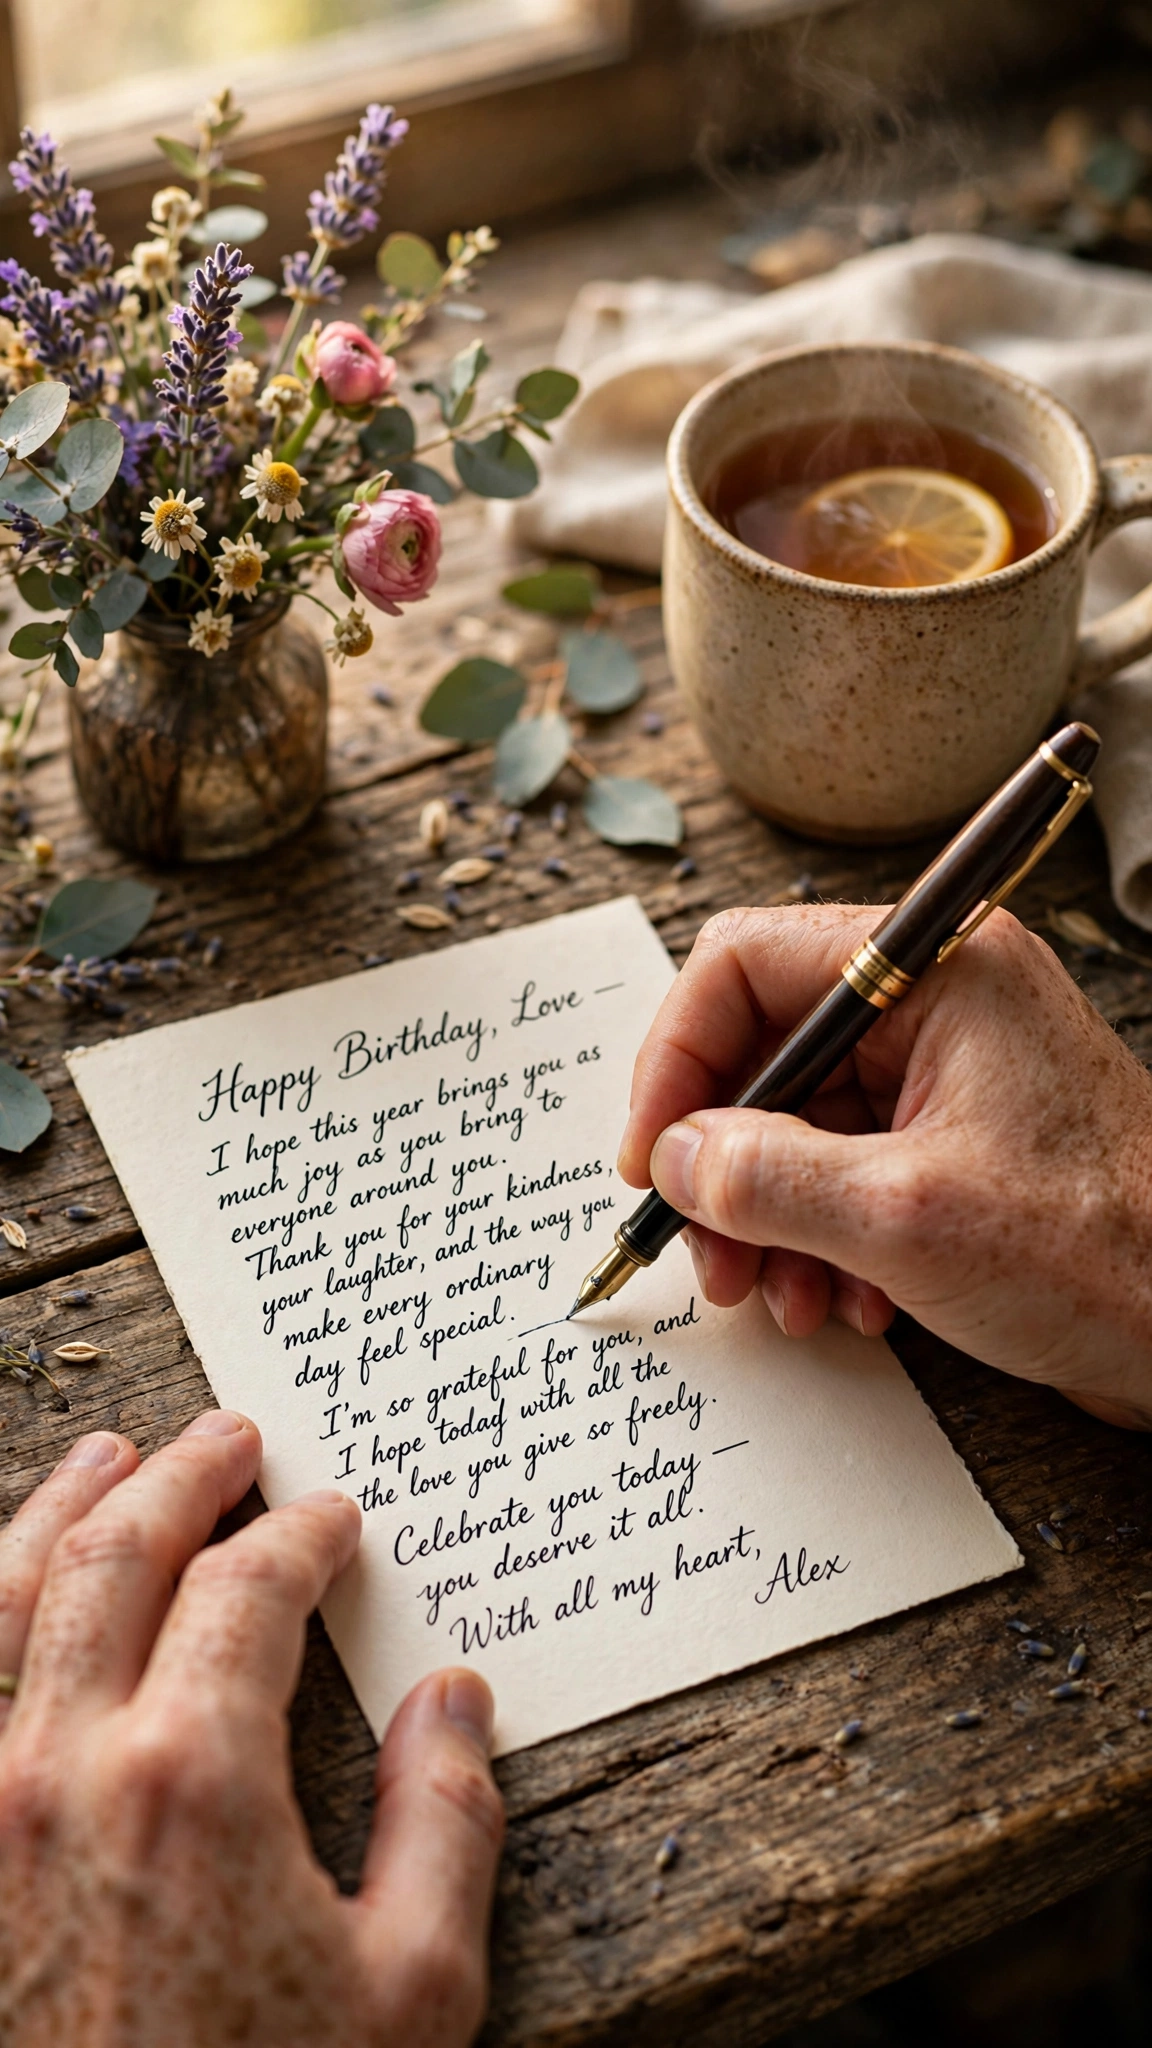 Happy Birthday, Love —
I hope this year brings you as
much joy as you bring to
everyone around you.
Thank you for your kindness,
your laughter, and the way you
make every ordinary
day feel special.
I'm so grateful for you, and
I hope today with all the
the love you give so freely.
Celebrate you today —
you deserve it all.
With all my heart,
Alex